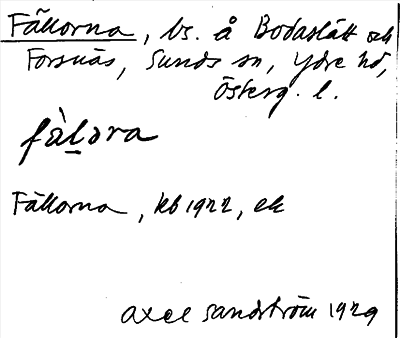 Fällorna, bs. å Bodaslätt och
Forsnäs, Sunds sn, Ydre hd,
Österg. l.
fàḷora
Fällorna, kb 1922, ek
Axel Sandström 1929